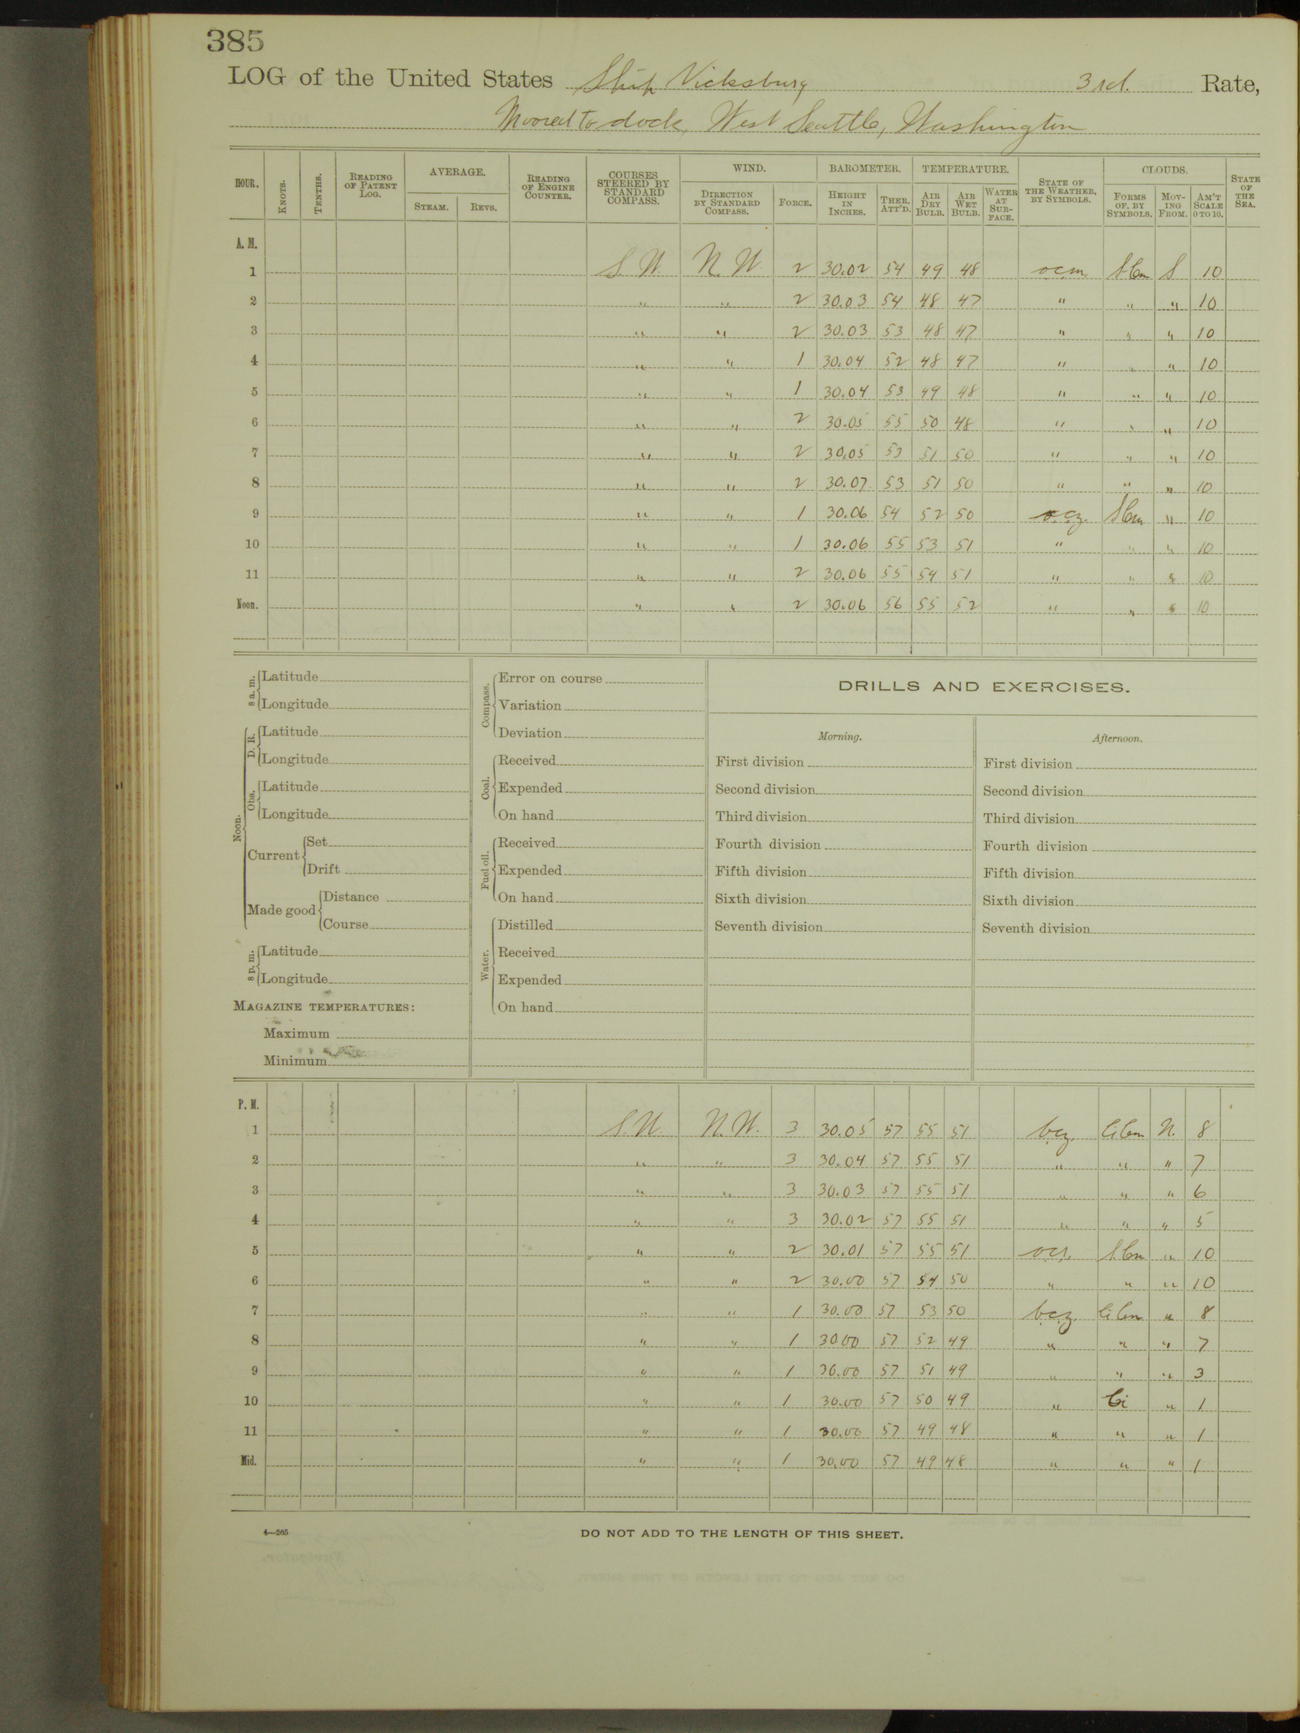 385
LOG of the United States Ship Vicksburg 3rd. Rate,
Moored to dock, West Seattle, Washington
HOUR. KNOTS. TENTHS. READING OF PATENT LOG. AVERAGE. STEAM. REVS. READING OF ENGINE COUNTER. COURSES STEERED BY STANDARD COMPASS. WIND. DIRECTION BY STANDARD COMPASS. FORCE. BAROMETER. HEIGHT IN INCHES. THER. ATT'D. TEMPERATURE. AIR DRY BULB. AIR WET BULB. WATER AT SURFACE. STATE OF THE WEATHER, BY SYMBOLS. CLOUDS. FORMS OF, BY SYMBOLS. MOVING FROM. AM'T SCALE 0 TO 10. STATE OF THE SEA.
A. M.
1 S.W. N.W. 2 30.02 54 49 48 o.c.m. S.Cu S 10
2 " " 2 30.03 54 48 47 " " " 10
3 " " 2 30.03 53 48 47 " " " 10
4 " " 1 30.04 52 48 47 " " " 10
5 " " 1 30.04 53 49 48 " " " 10
6 " " 2 30.05 55 50 48 " " " 10
7 " " 2 30.05 53 51 50 " " " 10
8 " " 2 30.07 53 51 50 " " " 10
9 " " 1 30.06 54 52 50 o.c.z. S.Cu " 10
10 " " 1 30.06 55 53 51 " " " 10
11 " " 2 30.06 55 54 51 " " " 10
Noon. " " 2 30.06 56 55 52 " " " 10
8 a. m. Latitude
Longitude
Noon. D. R. Latitude
Longitude
Obs. Latitude
Longitude
Current Set
Drift
Made good Distance
Course
8 p. m. Latitude
Longitude
MAGAZINE TEMPERATURES:
Maximum
Minimum
Compass. Error on course
Variation
Deviation
Coal. Received
Expended
On hand
Fuel oil. Received
Expended
On hand
Water. Distilled
Received
Expended
On hand
DRILLS AND EXERCISES.
Morning.
First division
Second division
Third division
Fourth division
Fifth division
Sixth division
Seventh division
Afternoon.
First division
Second division
Third division
Fourth division
Fifth division
Sixth division
Seventh division
P. M.
1 S.W. N.W. 3 30.05 57 55 51 b.c.z. Ci.Cu N. 8
2 " " 3 30.04 57 55 51 " " " 7
3 " " 3 30.03 57 55 51 " " " 6
4 " " 3 30.02 57 55 51 " " " 5
5 " " 2 30.01 57 55 51 S.Cu " 10
6 " " 2 30.00 57 54 50 " " " 10
7 " " 1 30.00 57 53 50 b.c.z. Ci Cu " 8
8 " " 1 30.00 57 52 49 " " " 7
9 " " 1 30.00 57 51 49 " " " 3
10 " " 1 30.00 57 50 49 " Ci " 1
11 " " 1 30.00 57 49 48 " " " 1
Mid. " " 1 30.00 57 49 48 " " " 1
4—265
DO NOT ADD TO THE LENGTH OF THIS SHEET.